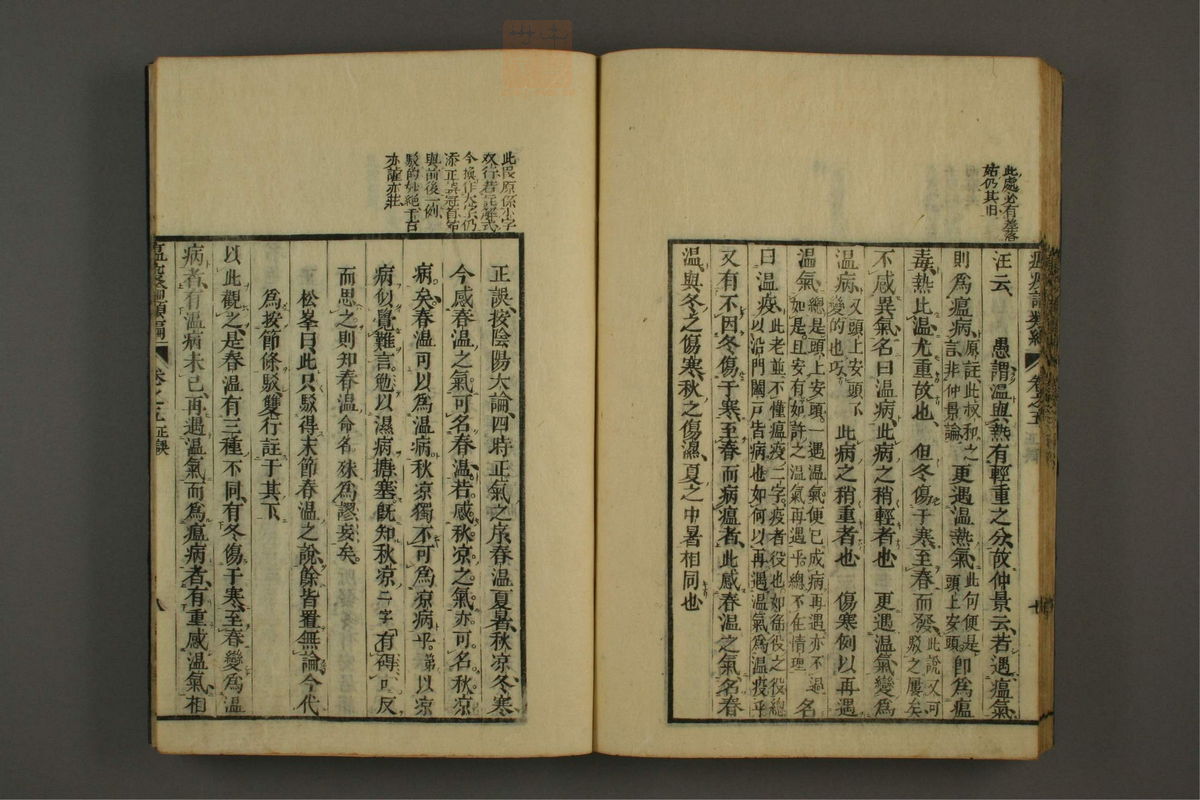 此處必有差落
姑仍其旧
汪云愚謂溫與熱有輕重之分故仲景云若遇瘟氣
則爲瘟病原註此叔和之言非仲景論更遇溫熱氣此句便是頭上安頭卽爲瘟
毒熱比溫尤重故也但冬傷于寒至春而發此說又可駁之屢矣
不感異氣名曰溫病此病之稍輕者也更遇溫氣變爲
溫病又頭上安頭了變的也巧此病之稍重者也傷寒例以再遇
溫氣總是頭上安頭一遇溫氣便已成病再遇亦不過如是且安有如許之溫氣再遇乎總不在情理名
曰溫疫此老並不懂瘟疫二字疫者役也如徭役之役總以沿門闔戶皆病也如何以再遇溫氣爲溫疫乎
又有不因冬傷于寒至春而病瘟者此感春溫之氣名春
溫與冬之傷寒秋之傷濕夏之中暑相同也
此段原係小字
双行若註解式
今換作大字仍
添正誤冠首節
與前後一例
駁的妙絕千百
亦謔亦莊
正誤按陰陽大論四時正氣之序春溫夏暑秋涼冬寒
今感春溫之氣可名春溫若感秋涼之氣亦可名秋涼
病矣春溫可以爲溫病秋涼獨不可爲涼病乎第以涼
病似覺難言勉以濕病搪塞旣知秋涼二字有碍可反
而思之則知春溫命名殊爲謬妄矣
松峯曰此只駁得末節春溫之說餘皆置無論今代
爲按節條駁雙行註于其下
以此觀之是春溫有三種不同有冬傷于寒至春變爲溫
病者有溫病未已再遇溫氣而爲瘟病者有重感溫氣相
瘟疫論類編
卷之五
正誤
八